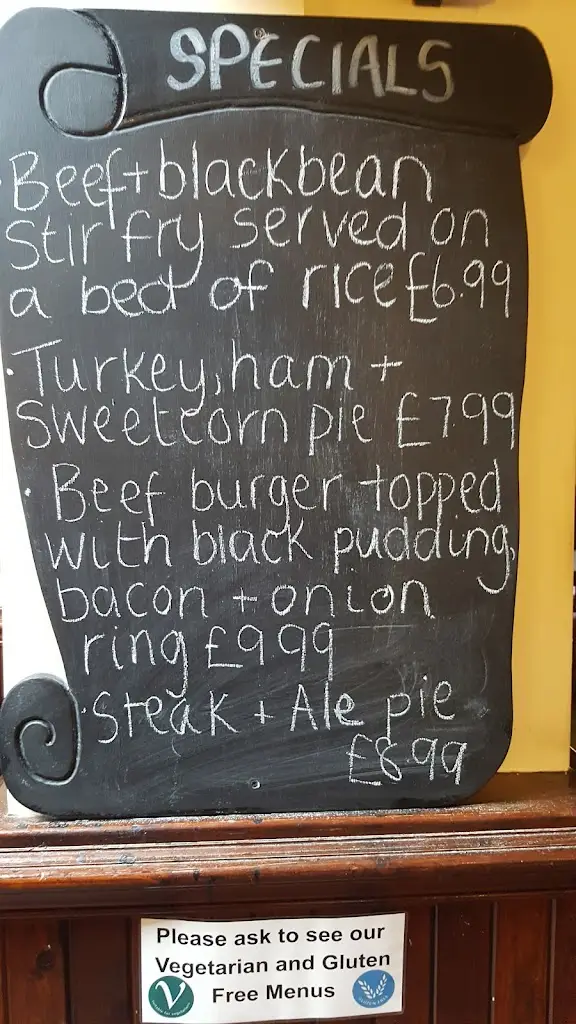 SPECIALS
·Beef+blackbean
Stir fry served on
a bed of rice £6.99
·Turkey, ham +
Sweetcorn pie £7.99
·Beef burger topped
with black pudding,
bacon + onion
ring £9.99
·Steak + Ale pie
£8.99
Please ask to see our
Vegetarian and Gluten
Free Menus
V